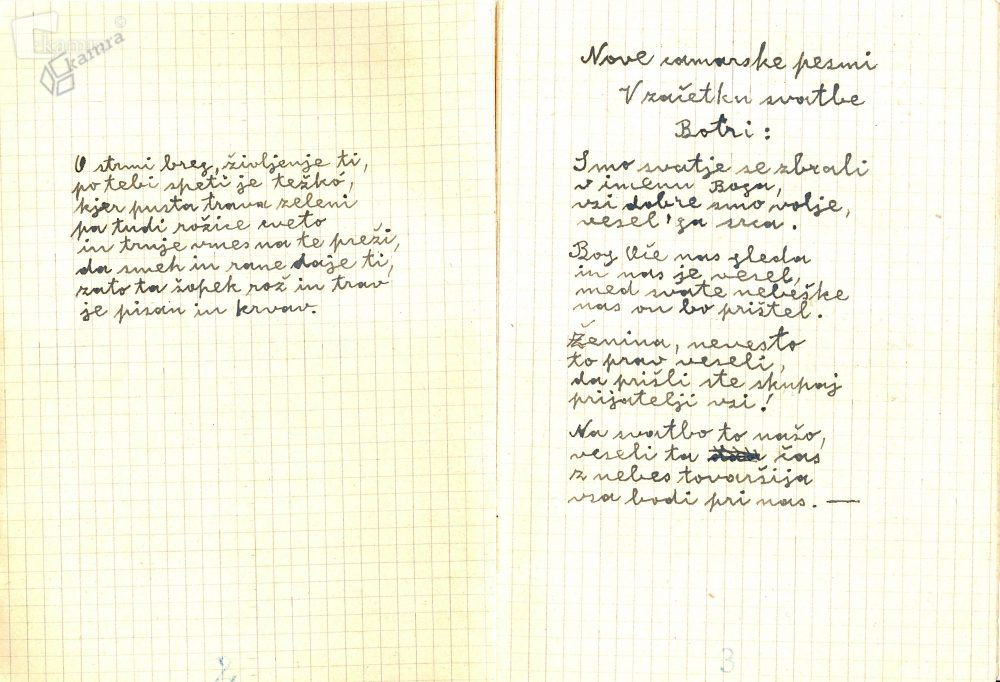 kamra
O strmi breg, življenje ti,
po tebi speti je težkó,
kjer pusta trava zeleni
pa tudi rožice cveto
in trnje vmes na te preži,
da smeh in rane daje ti,
zato ta šopek rož in trav
je pisan in krvav.
2
Nove camarske pesmi
V začetku svatbe
Botri:
Smo svatje se zbrali
v imenu Boga,
vsi dobre smo volje,
vesel'ga srca.
Bog Oče nas gleda
in nas je vesel,
med svate nebeške
nas on bo prištel.
Ženina, nevesto
to prav veseli,
da prišli ste skupaj
prijatelji vsi!
Na svatbo to našo,
veseli ta čas
z nebes tovaršija
vsa bodi pri nas. —
3